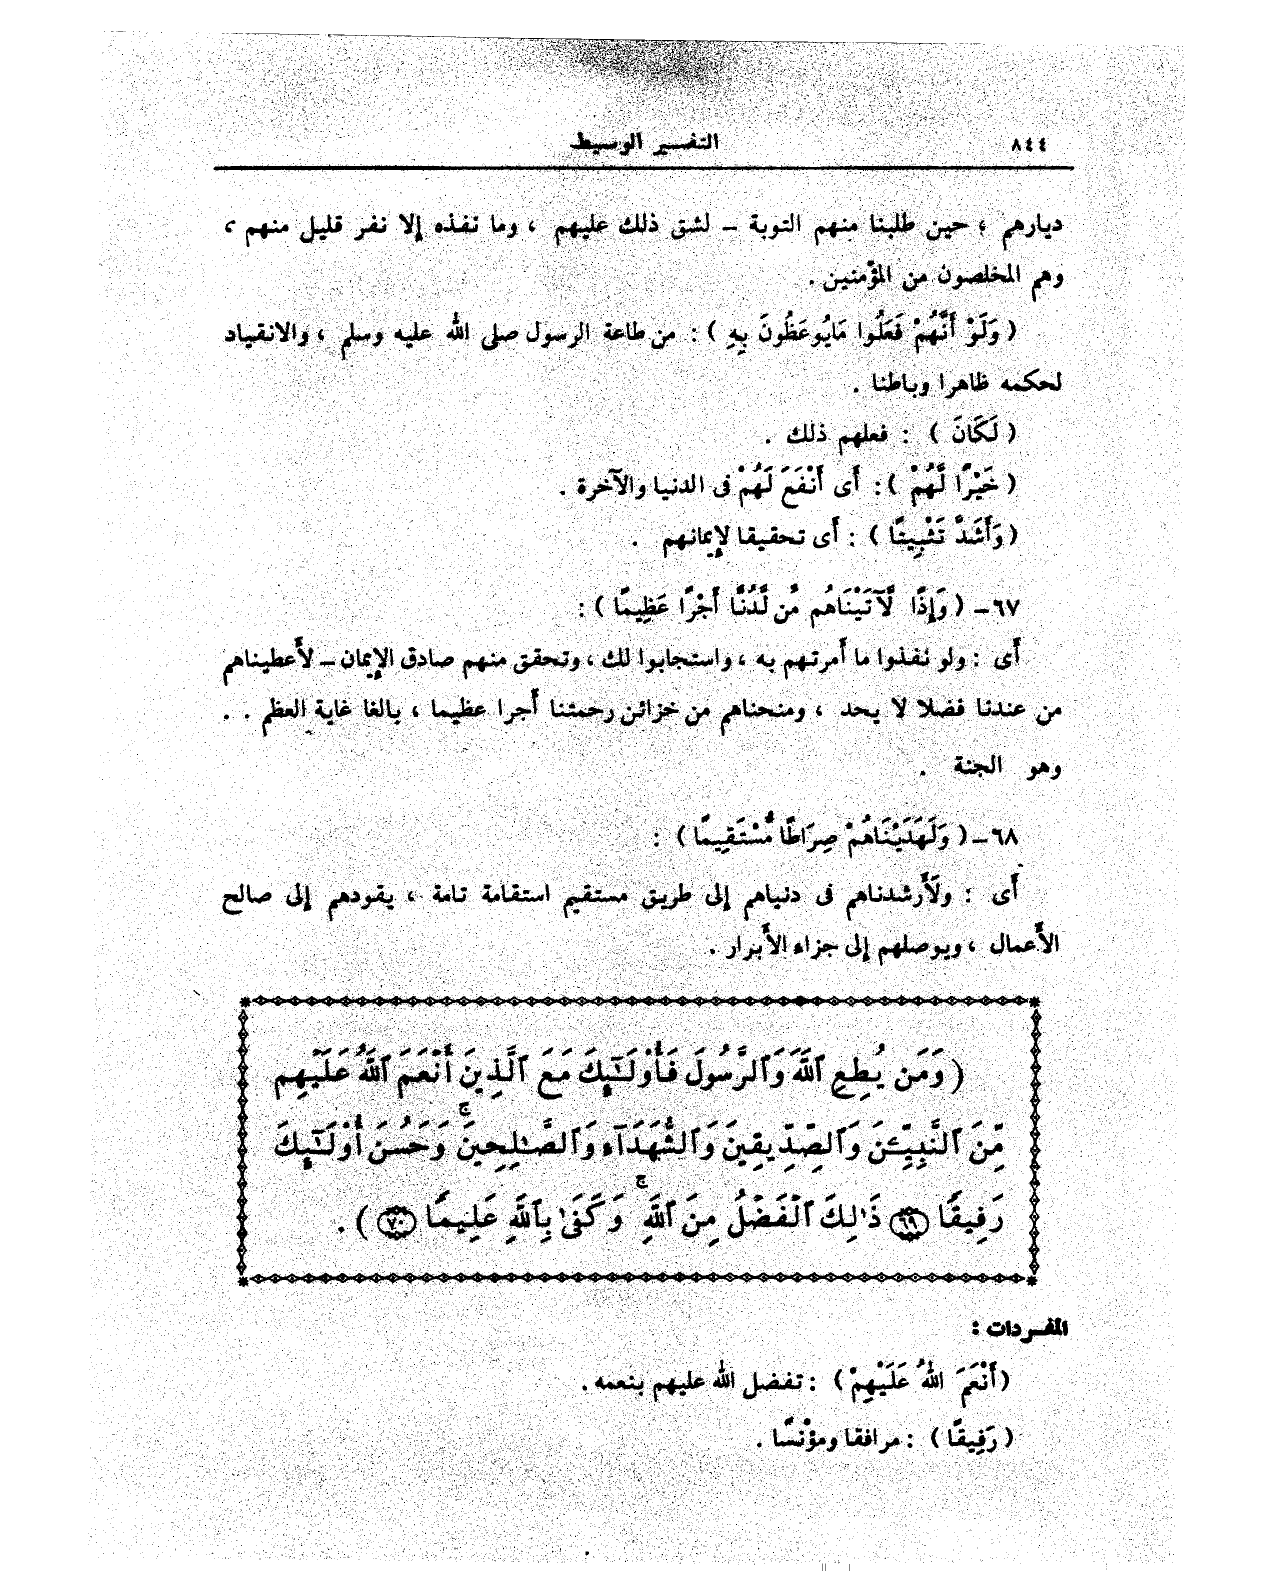 ٨٤٤
التفسير الوسيط
ديارهم ؛ حين طلبنا منهم التوبة – لشق ذلك عليهم ، وما نفذه إلا نفر قليل منهم ،
وهم المخلصون من المؤمنين .
( وَلَوْ أَنَّهُمْ فَعَلُوا مَايُوعَظُونَ بِهِ ) : من طاعة الرسول صلى الله عليه وسلم ، والانقياد
لحكمه ظاهرا وباطنا .
( لَكَانَ ) : فعلهم ذلك .
( خَيْرًا لَّهُمْ ) : أَى أَنْفَعَ لَهُمْ فى الدنيا والآخرة .
( وَأَشَدَّ تَثْبِيتًا ) : أَى تحقيقا لإيمانهم .
٦٧ – ( وَإِذًا لَّآتَيْنَاهُم مِّن لَّدُنَّا أَجْرًا عَظِيمًا ) :
أَى : ولو نفذوا ما أَمرتهم به ، واستجابوا لك ، وتحقق منهم صادق الإيمان – لأَعطيناهم
من عندنا فضلا لا يحد ، ومنحناهم من خزائن رحمتنا أَجرا عظيما ، بالغا غاية العظم . .
وهو الجنة .
٦٨ – ( وَلَهَدَيْنَاهُمْ صِرَاطًا مُّسْتَقِيمًا ) :
أَى : ولأَرشدناهم فى دنياهم إلى طريق مستقيم استقامة تامة ، يقودهم إلى صالح
الأَعمال ، ويوصلهم إلى جزاء الأَبرار .
( وَمَن يُطِعِ ٱللَّهَ وَٱلرَّسُولَ فَأُوْلَـٰٓئِكَ مَعَ ٱلَّذِينَ أَنْعَمَ ٱللَّهُ عَلَيْهِم
مِّنَ ٱلنَّبِيِّـۧنَ وَٱلصِّدِّيقِينَ وَٱلشُّهَدَآءِ وَٱلصَّـٰلِحِينَ ۚ وَحَسُنَ أُوْلَـٰٓئِكَ
رَفِيقًا ﴿٦٩﴾ ذَٰلِكَ ٱلْفَضْلُ مِنَ ٱللَّهِ ۚ وَكَفَىٰ بِٱللَّهِ عَلِيمًا ﴿٧٠﴾ ) .
المفـردات :
( أَنْعَمَ اللهُ عَلَيْهِمْ ) : تفضل الله عليهم بنعمه .
( رَفِيقًا ) : مرافقا ومؤْنسًا .